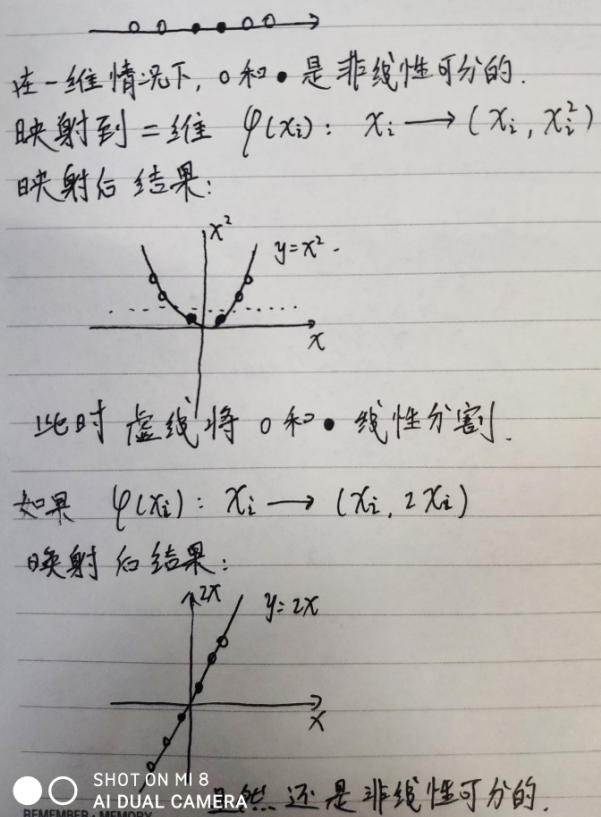 在一维情况下, o和●是非线性可分的.
映射到二维 φ(xᵢ): xᵢ → (xᵢ, xᵢ²)
映射后结果:
x²
y=x².
x
此时虚线将 o和● 线性分割.
如果 φ(xᵢ): xᵢ → (xᵢ, 2xᵢ)
映射后结果:
2x
y=2x
x
SHOT ON MI 8
AI DUAL CAMERA
显然还是非线性可分的.
REMEMBER · MEMORY